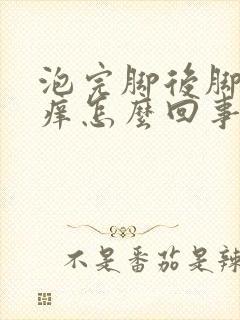 泡完脚後脚
痒怎麽回事
不是番茄是辣